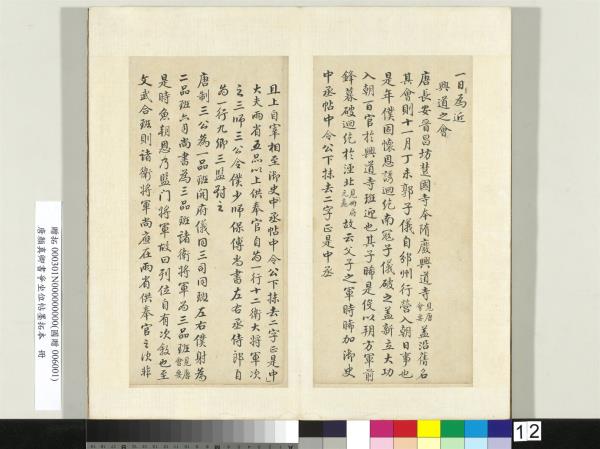 一日為近
興道之會
唐長安晉昌坊楚國寺今隋廢興道寺見唐會要蓋沿舊名
其會則十一月丁未郭子儀自邠州行營入朝日事也
是年僕固懷恩誘迴紇南寇子儀破之蓋新立大功
入朝百官於興道寺班迎也其子晞是役以朔方軍前
鋒暮破迴紇於涇北見兩唐元龜故云父子之軍時晞加御史
中丞帖中令公下抹去二字正是中丞
且上自宰相至御史中丞帖中令公下抹去二字正是中
大夫兩省五品以上供奉官自為一行十二衛大將軍次
之三師三公令僕少師保傅尚書左右丞侍郎自
為一行九卿三監對之
唐制三公為一品班開府儀同三司同班左右僕射為
二品班六月尚書為三品班諸衛將軍為三品班見唐會要
是時魚朝恩乃監門將軍故曰列位自有次敘也至
文武合班則諸衛將軍尚應在兩省供奉官之次非
贈拓000301N000000000(國贈006001)
唐顏真卿書爭坐位帖墨拓本 冊
12